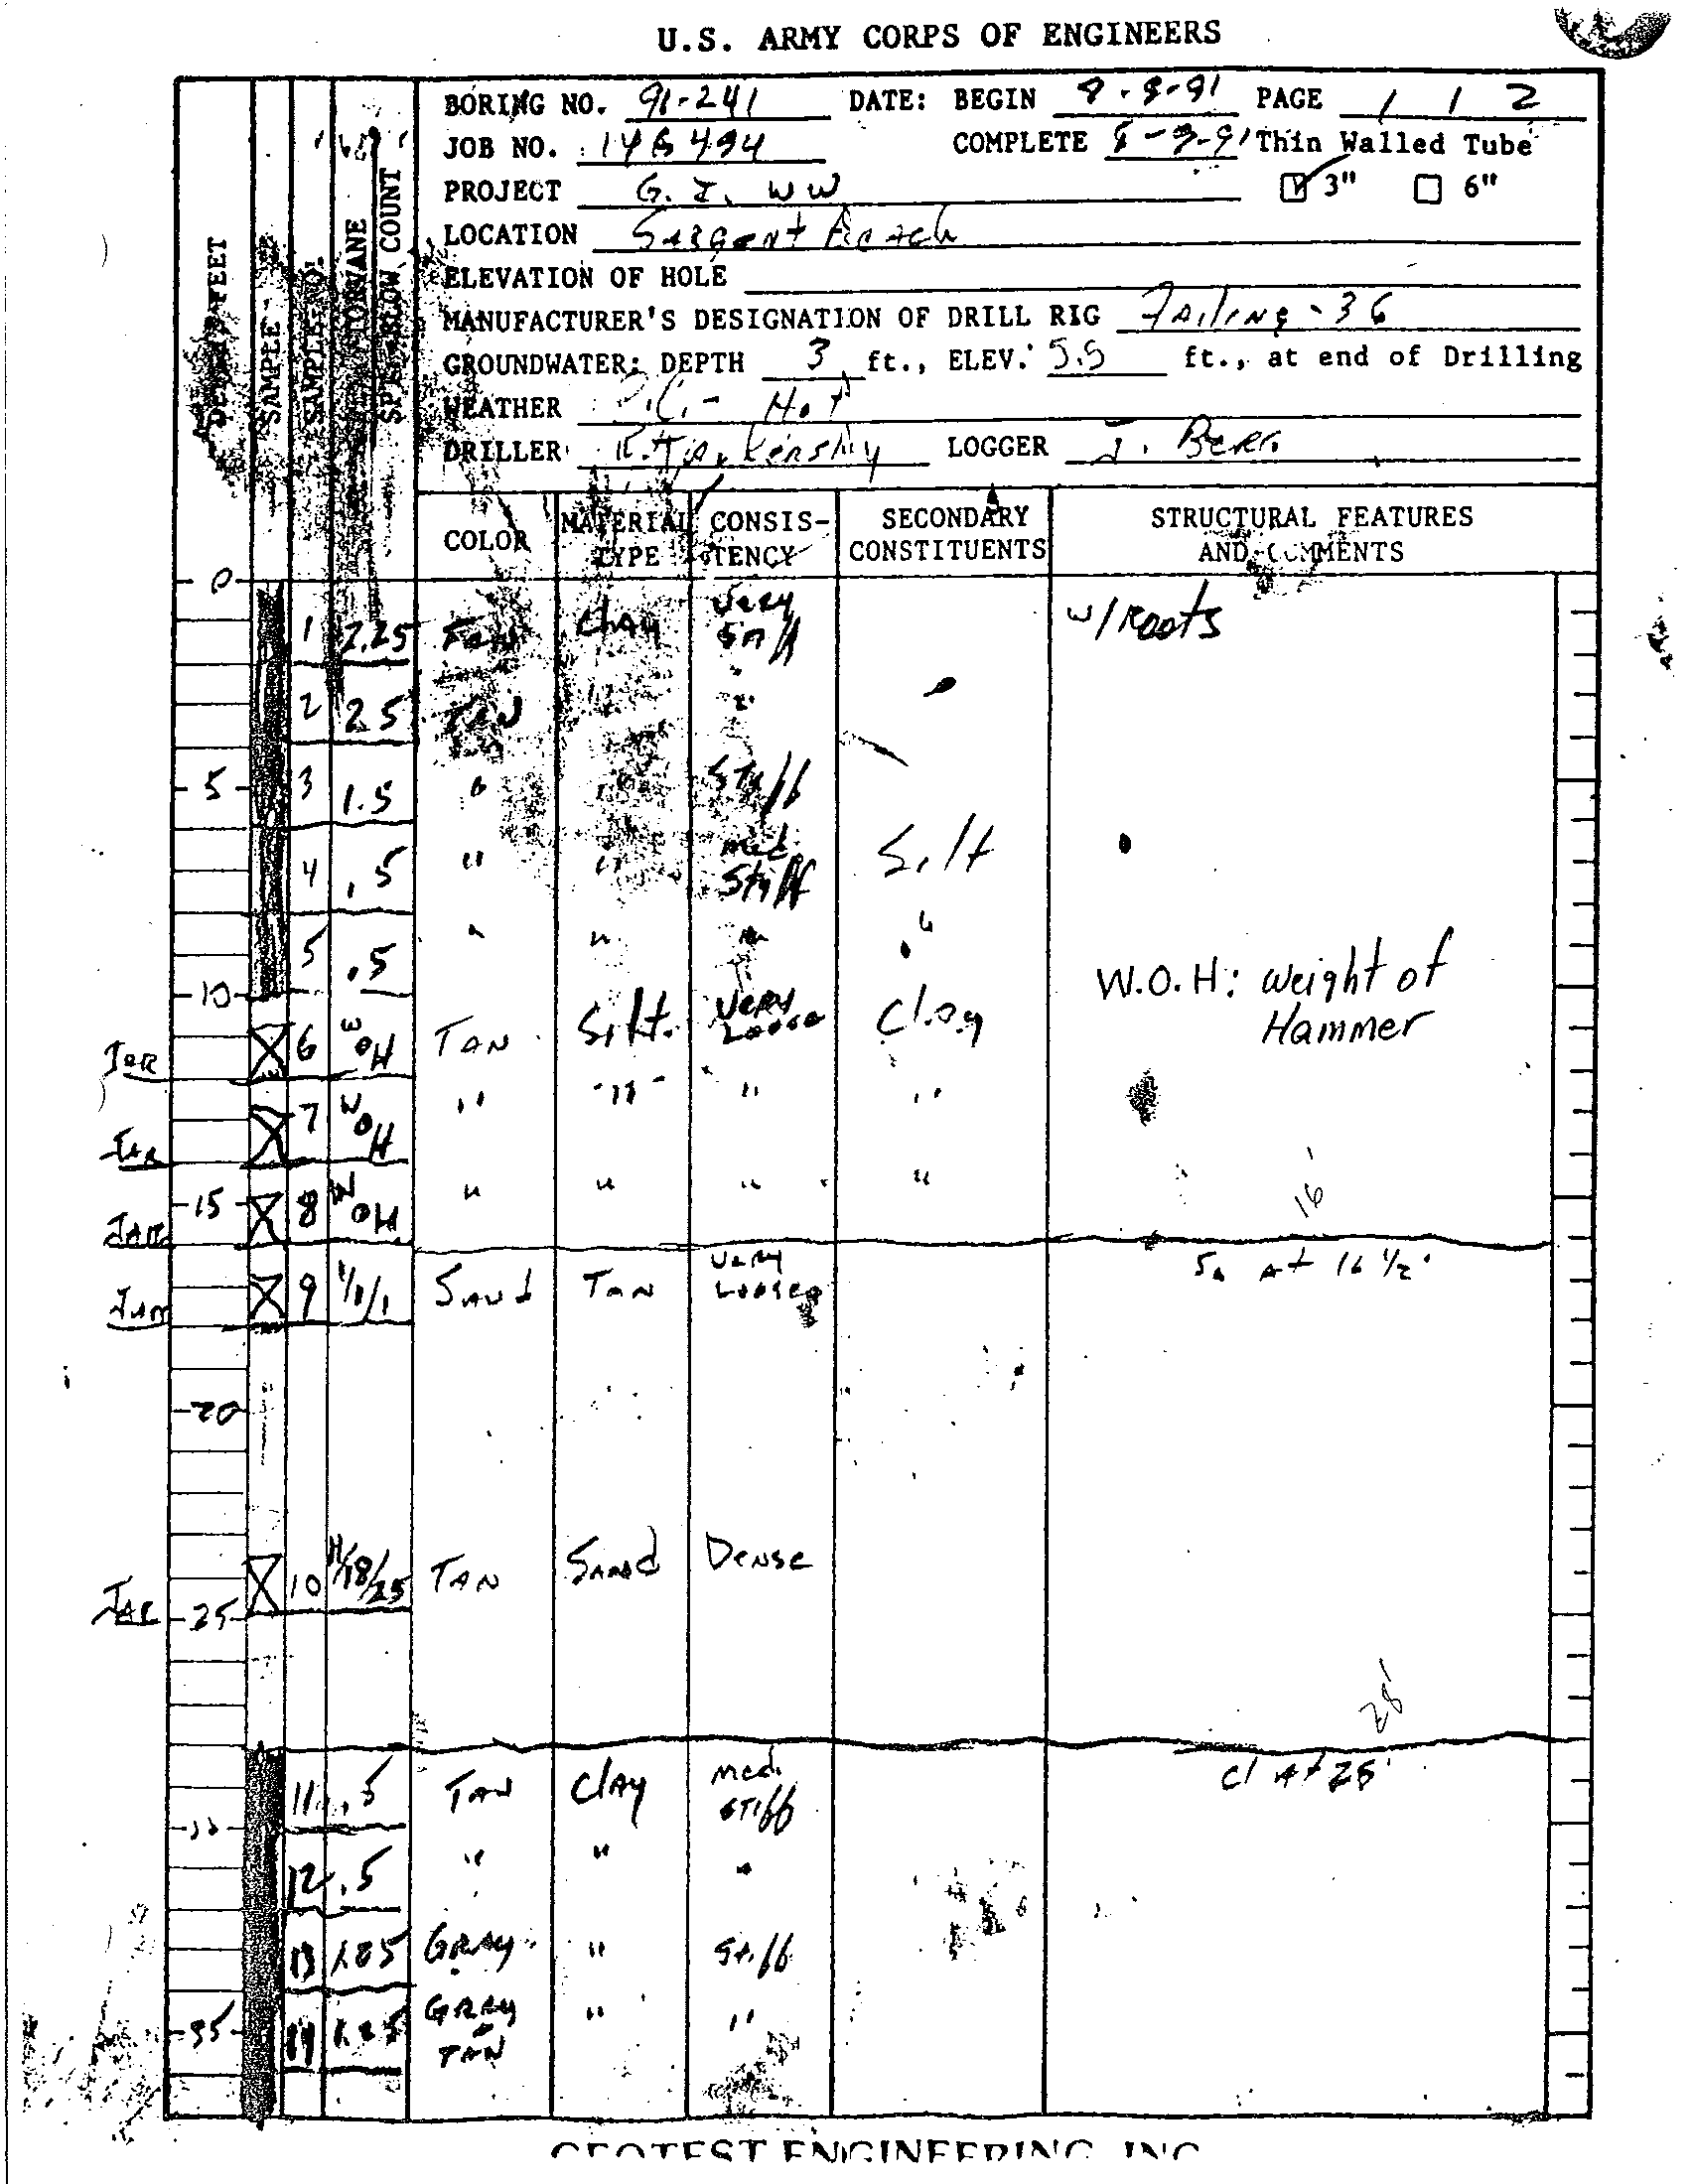 U.S. ARMY CORPS OF ENGINEERS
BORING NO. 91-241 DATE: BEGIN 8-8-91 PAGE 1 / 2
JOB NO. COMPLETE 8-8-91 Thin Walled Tube
PROJECT G. I. WW 3" 6"
LOCATION Sargent Beach
ELEVATION OF HOLE
MANUFACTURER'S DESIGNATION OF DRILL RIG Failing - 36
GROUNDWATER: DEPTH 3 ft., ELEV. 5.5 ft., at end of Drilling
WEATHER Hot
DRILLER LOGGER J. Berg
DEPTH FEET
SAMPLE
SAMPLE NO.
TORVANE
SPT BLOW COUNT
COLOR MATERIAL TYPE CONSISTENCY SECONDARY CONSTITUENTS STRUCTURAL FEATURES AND COMMENTS
0
1 2.25 TAN Clay Very Stiff w/ Roots
2 2.5 TAN " "
5 3 1.5 " " Stiff
4 .5 " " med. Stiff Silt
5 .5 " " " "
10
W.O.H: Weight of
Hammer
Jar 6 WOH TAN Silt. Very Loose Clay
Jar 7 WOH " " " "
Jar 15 8 WOH " " " "
16'
Sa At 16 1/2'
Jar 9 1/1/1 Sand Tan Very Loose
20
10 11/18/25 TAN Sand Dense
Jar 25
28'
Cl At 28'
11 .5 TAN Clay Med. Stiff
12 .5 " " "
13 GRAY " Stiff
35 14 GRAY TAN " "
GEOTEST ENGINEERING INC